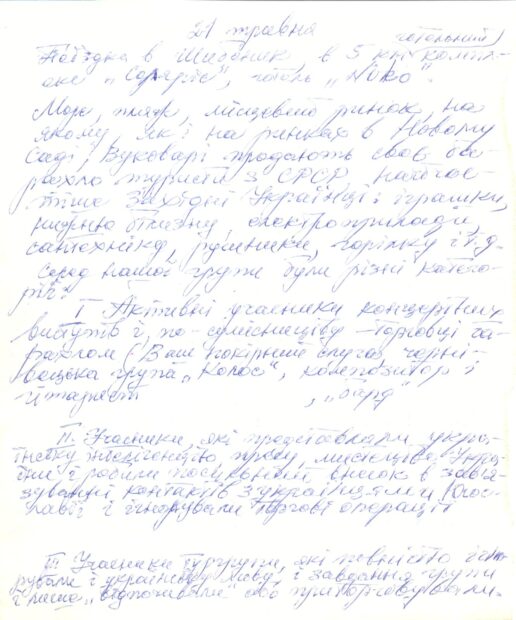 21 травня
Поїздка в Шибеник, в 5 км готельний
комплекс „Соляріс“, готель „Niko“.
Море, пляж, місцевий ринок, на
якому, як і на ринках в Новому
Саді, Вуковарі продають своє ба-
рахло туристи з СРСР, найчас-
тіше західні Українці: іграшки,
нижню білизну, електроприлади,
сантехніку, рушники, горілку і т.д.
Серед нашої групи були різні катего-
рії:
І Активні учасники концертних
виступів і, по-сумісництву – торговці ба-
рахлом (Ваш покірний слуга, черні-
вецька група „Колос“, композитор і
гітарист , „бард“
ІІ. Учасники, які представляли укра-
їнську інтелігенцію, пресу, мистецтво Укра-
їни і робили посильний внесок в зав'я-
зуванні контактів з українцями Юго-
славії і ігнорували торгові операції
ІІІ Учасники тургрупи, які повністю ігно-
рували і українську мову, і завдання групи
і лише „відпочивали“ або приторговували.